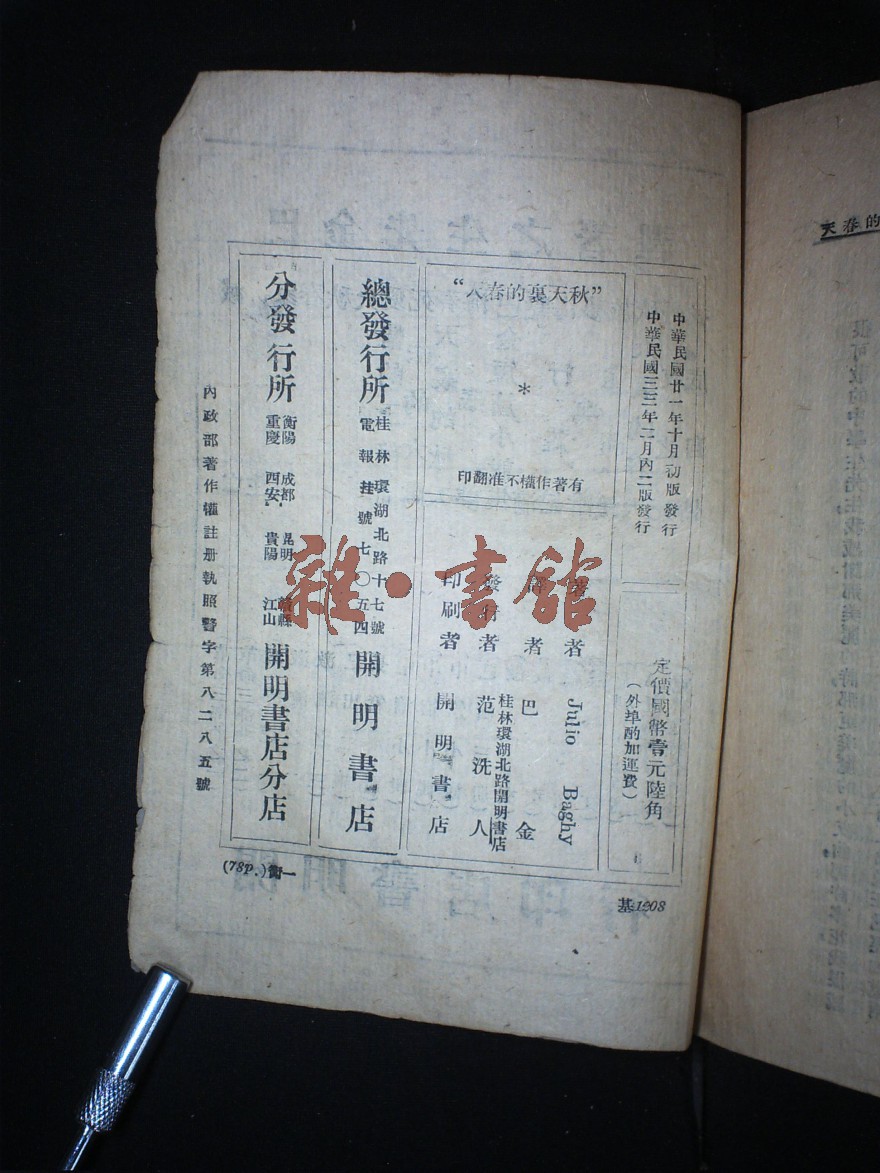 中華民國廿一年十月初版發行
中華民國三三年二月內二版發行
定價國幣壹元陸角
(外埠酌加運費)
“秋天裏的春天”
*
有著作權不准翻印
著者 Julio Baghy
譯者 巴金
發行者 桂林環湖北路開明書店 范洗人
印刷者 開明書店
總發行所 桂林環湖北路十七號 電報挂號七〇五四 開明書店
分發行所 衡陽 成都 昆明 贛縣 重慶 西安 貴陽 江山 開明書店分店
內政部著作權註册執照警字第八二八五號
(78P.)衡一
雜·書館